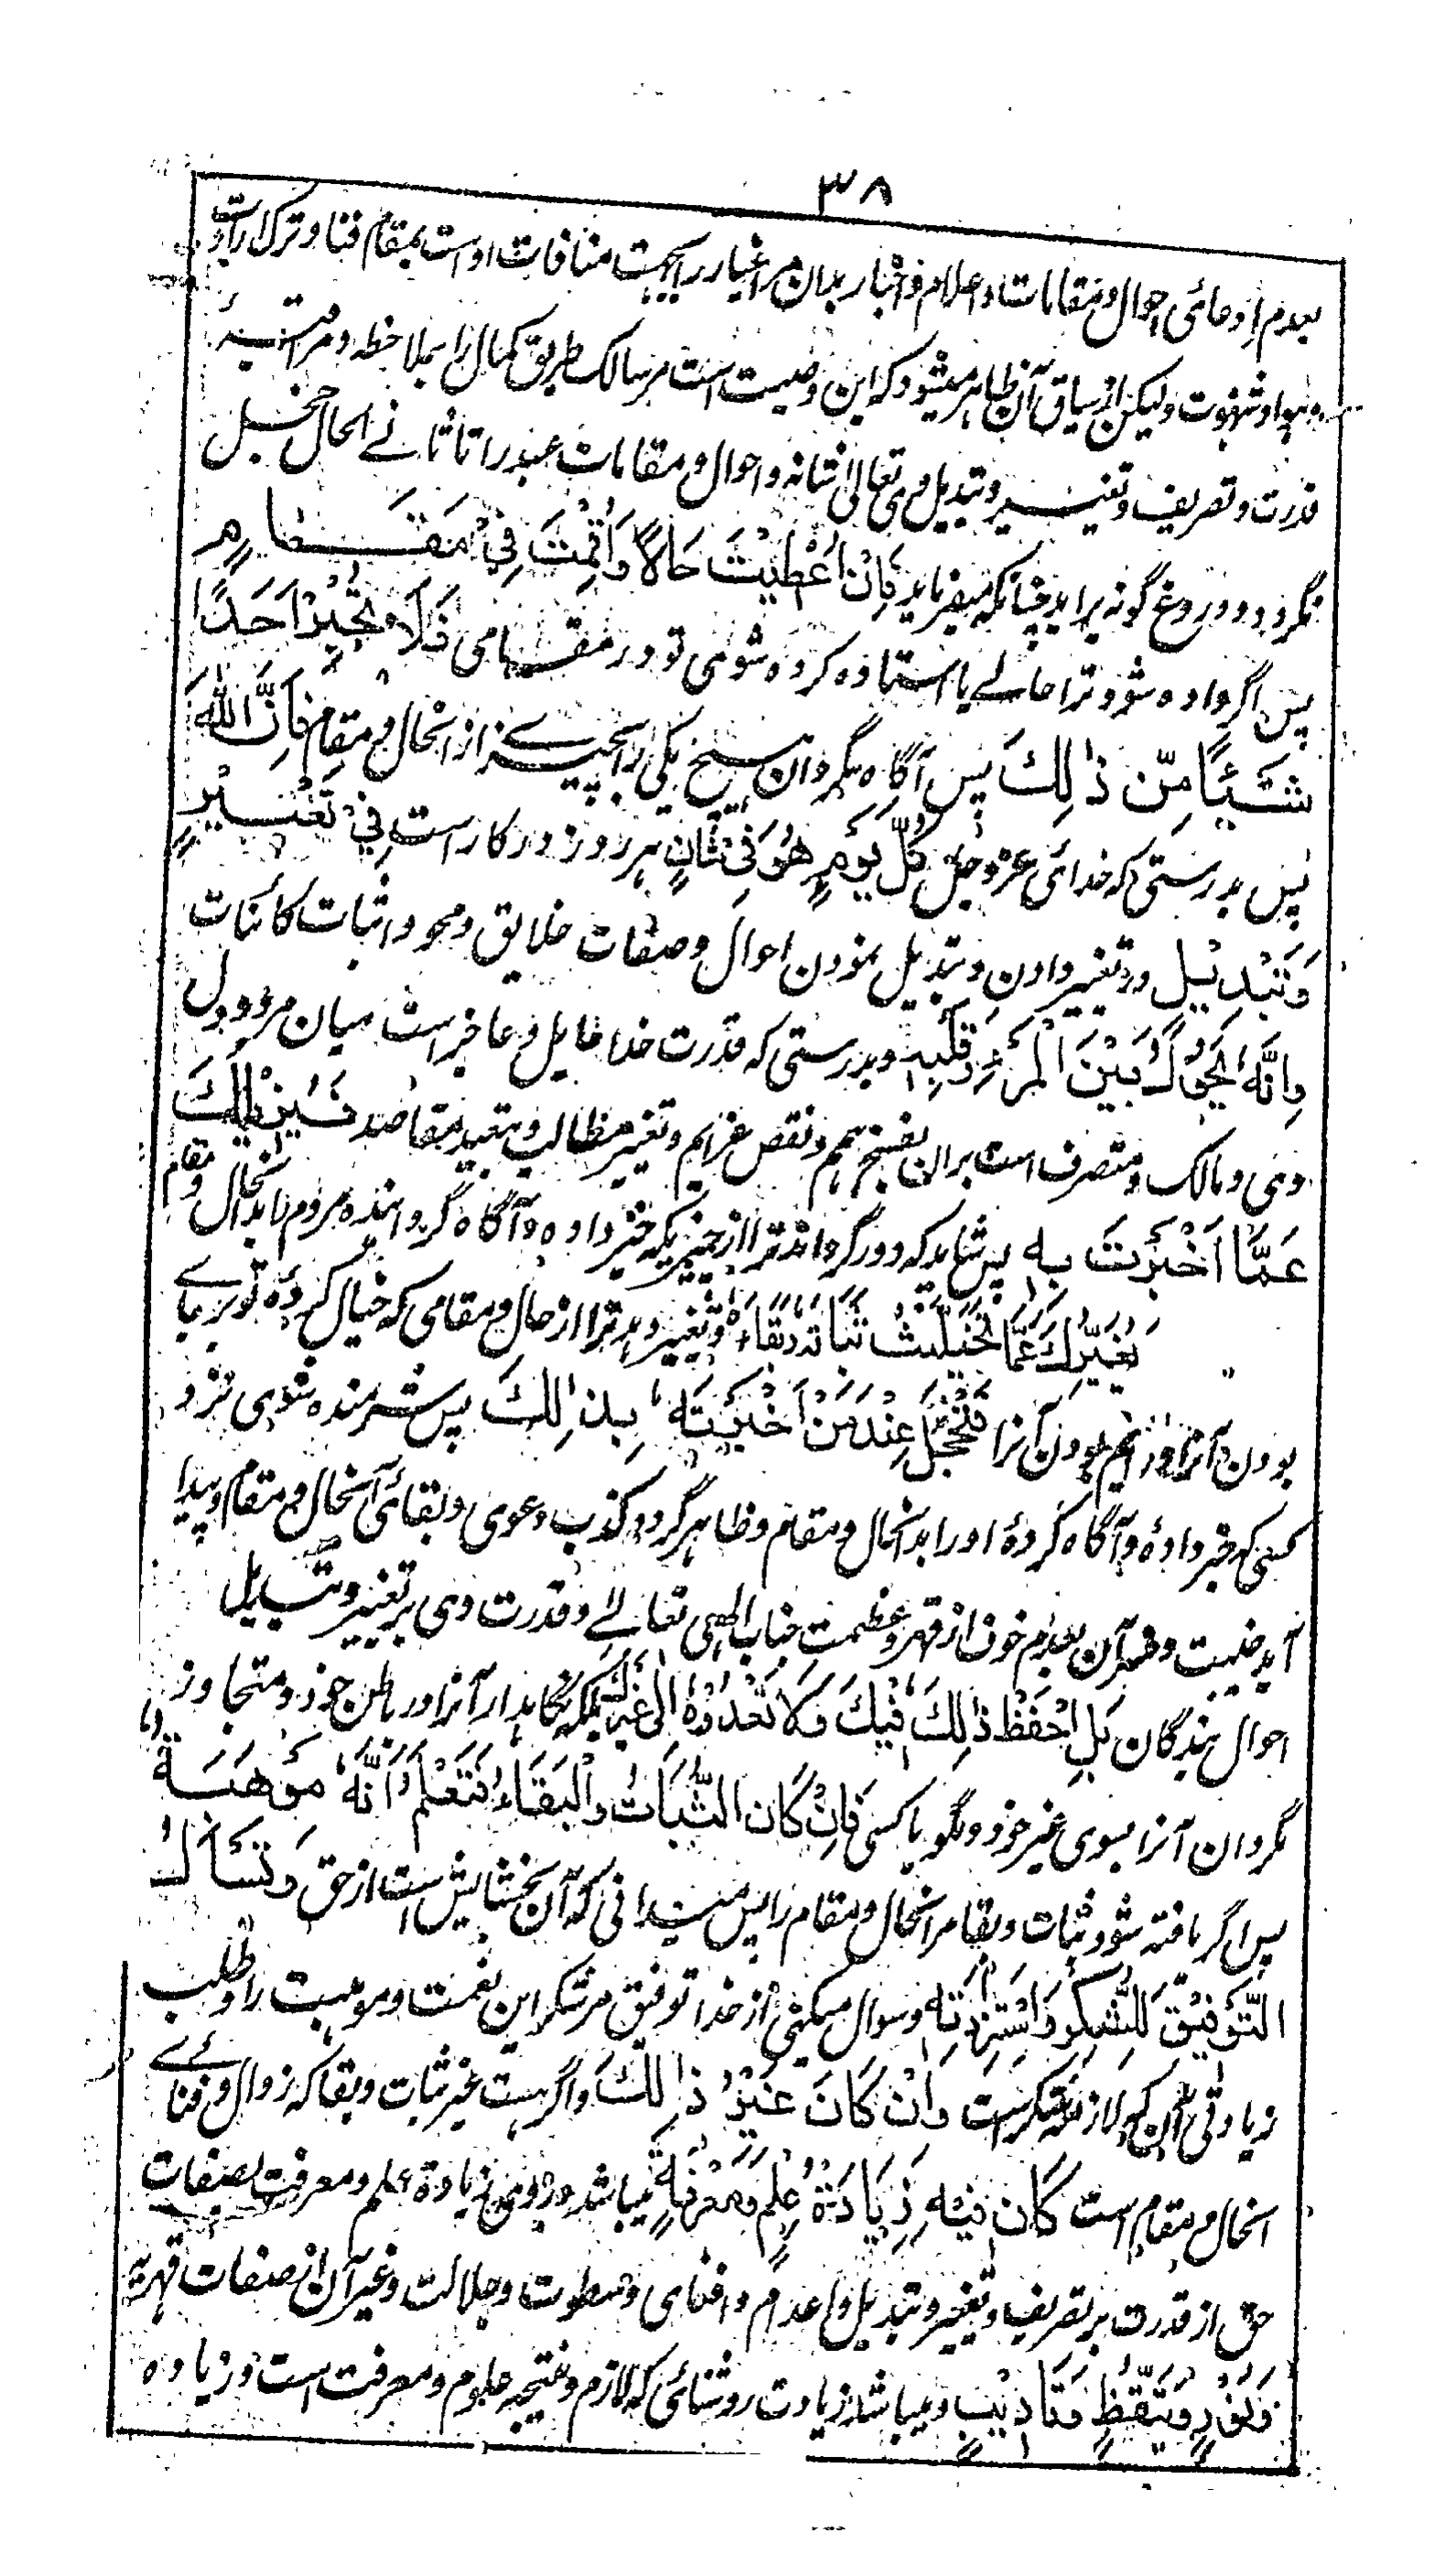 ۳۸
بعدم ادعائی احوال و مقامات و اعلام و اخبار بدان مر اغیار را بجهت منافات اوست بمقام فنا و ترک ارادت
و هوا و شهوت ولیکن از سیاق آن ظاهر میشود که این وصیت است مر سالک طریق کمال را بملاحظه و مراقبهٔ
قدرت و تصریف و تغییر و تبدیل وی تعالی شانه و احوال و مقامات عبد را تا ثانی الحال خجل
نگردد و دروغ گونه برآید چنانکه میفرماید فَاِنْ اُعْطِیْتَ حَالًا وَاُقِمْتَ فِیْ مَقَامٍ
پس اگر داده شود ترا حالے یا استاده کرده شوی تو در مقامی فَلَا تُخْبِرْ اَحَدًا
شَیْئًا مِّنْ ذٰلِكَ پس آگاه مگردان هیچ یکی را بچیزے از انحال و مقام فَاِنَّ اللهَ
پس بدرستی که خدائی عز و جل کُلَّ یَوْمٍ هُوَ فِیْ شَانٍ هر روز در کار است فِیْ تَغْیِیْرٍ
وَتَبْدِیْلٍ در تغییر دادن و تبدیل نمودن احوال و صفات خلایق و محو و اثبات کائنات
وَاِنَّهٗ یَحُوْلُ بَیْنَ الْمَرْءِ وَقَلْبِهٖ و بدرستی که قدرت خدا حایل و حاجز است میان مرد و دل
وی و مالک و متصرف است بران بفسخ همم و نقض عزایم و تغییر مطالب و تبعید مقاصد فَیُزِیْلُكَ
عَمَّا اَخْبَرْتَ بِهٖ پس شاید که دور گرداند ترا از چیزیکه خبر داده و آگاه گردانیده مردم را بدانحال و مقام
وَیُغَیِّرُكَ عَمَّا تَخَیَّلْتَ ثَبَاتَهٗ وَبَقَاءَهٗ و تغییر دهد ترا از حال و مقامی که خیال کردهٔ تو بر جاے
بودن آنرا و دائم بودن آنرا فَتَخْجَلُ عِنْدَ مَنْ اَخْبَرْتَهٗ بِذٰلِكَ پس شرمنده شوی نزد
کسی که خبر دادهٔ و آگاه کردهٔ او را بدانحال و مقام و ظاهر گردد کذب دعوی و بقائی آنحال و مقام و پیدا
آید خیبت و ضمیر آن بعدم خوف از قهر و عظمت جناب الهی تعالے و قدرت وی بر تغییر و تبدیل
احوال بندگان بَلِ احْفَظْ ذٰلِكَ فِیْكَ وَلَا تُعْدِهٖ اِلٰی غَیْرِكَ بلکه نگاهدار آنرا در باطن خود و متجاوز
مگردان آنرا بسوی غیر خود و مگو با کسی فَاِنْ کَانَ الثَّبَاتُ وَالْبَقَاءُ فَتَعْلَمُ اَنَّهٗ مَوْهِبَةٌ
پس اگر یافته شود ثبات و بقا مر انحال و مقام را پس میدانی که آن بخشایش است از حق وَتَسْاَلُ
التَّوْفِیْقَ لِلشُّکْرِ وَاسْتِزَادَتِهٖ و سوال میکنی از خدا توفیق مر شکر این نعمت و موهبت را و طلب
زیادتی آن که لازمهٔ شکر است وَاِنْ کَانَ غَیْرُ ذٰلِكَ و اگر هست غیر ثبات و بقا که زوال و فناے
انحال و مقام است کَانَ فِیْهِ زِیَادَةُ عِلْمٍ وَمَعْرِفَةٍ میباشد در وی زیادة علم و معرفت بصفات
حق از قدرت بر تصریف و تغییر و تبدیل و اعدام و افنای و سطوت و جلالت و غیر آن از صفات قهریه
وَنُوْرٍ وَتَیَقُّظٍ وَتَادِیْبٍ و میباشد زیادت روشنائی که لازم و نتیجه علوم و معرفت است و زیاده